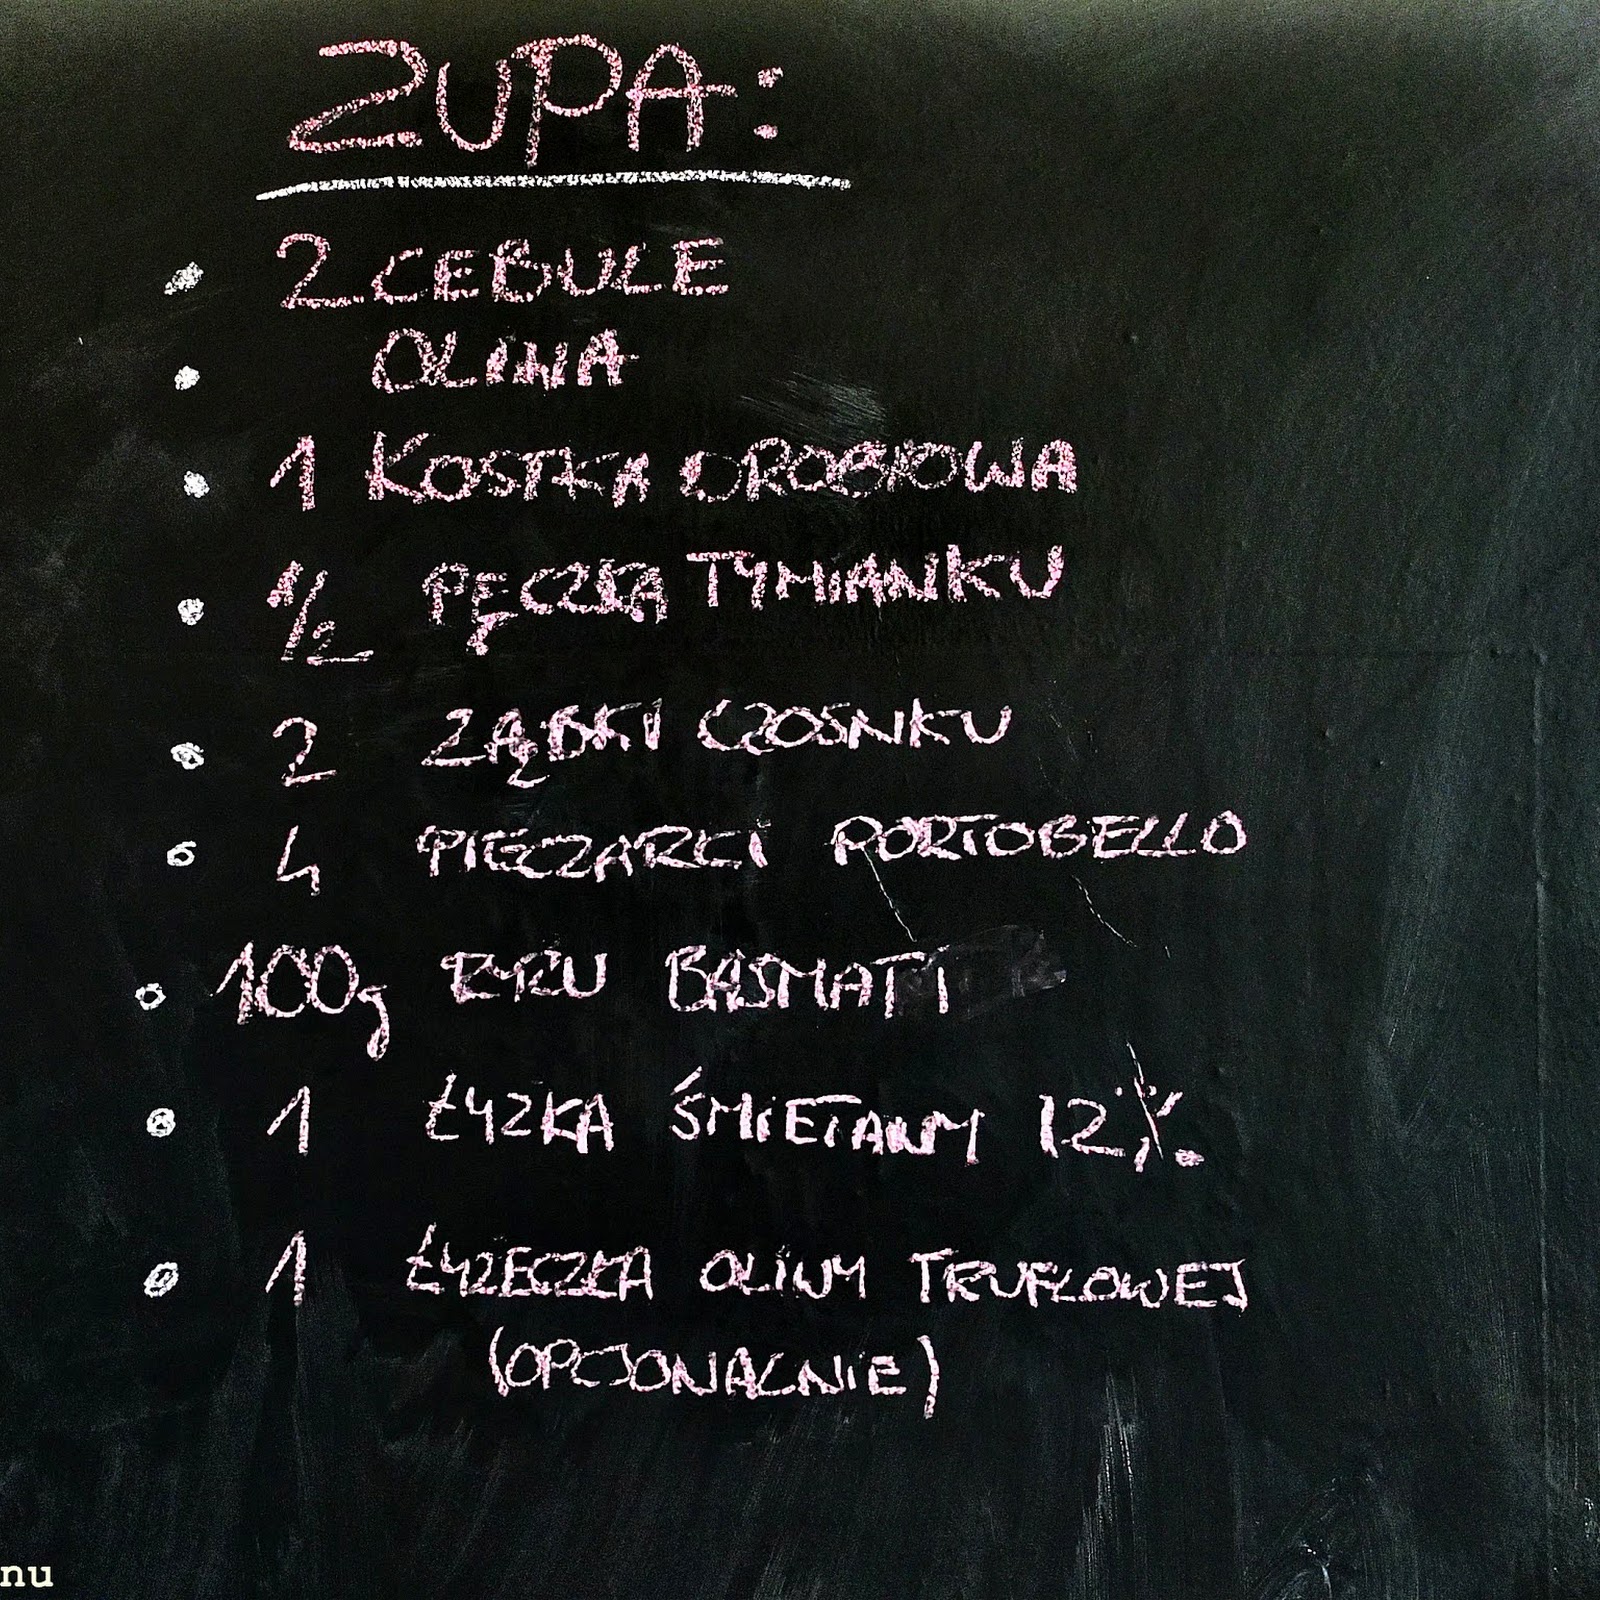 ZUPA:
• 2 CEBULE
• OLIWA
• 1 KOSTKA DROBIOWA
• 1/2 PĘCZKA TYMIANKU
• 2 ZĄBKI CZOSNKU
• 4 PIECZARKI PORTOBELLO
• 100g RYŻU BASMATI
• 1 ŁYŻKA ŚMIETANY 12%.
• 1 ŁYŻECZKA OLIWY TRUFLOWEJ
(OPCJONALNIE)
nu